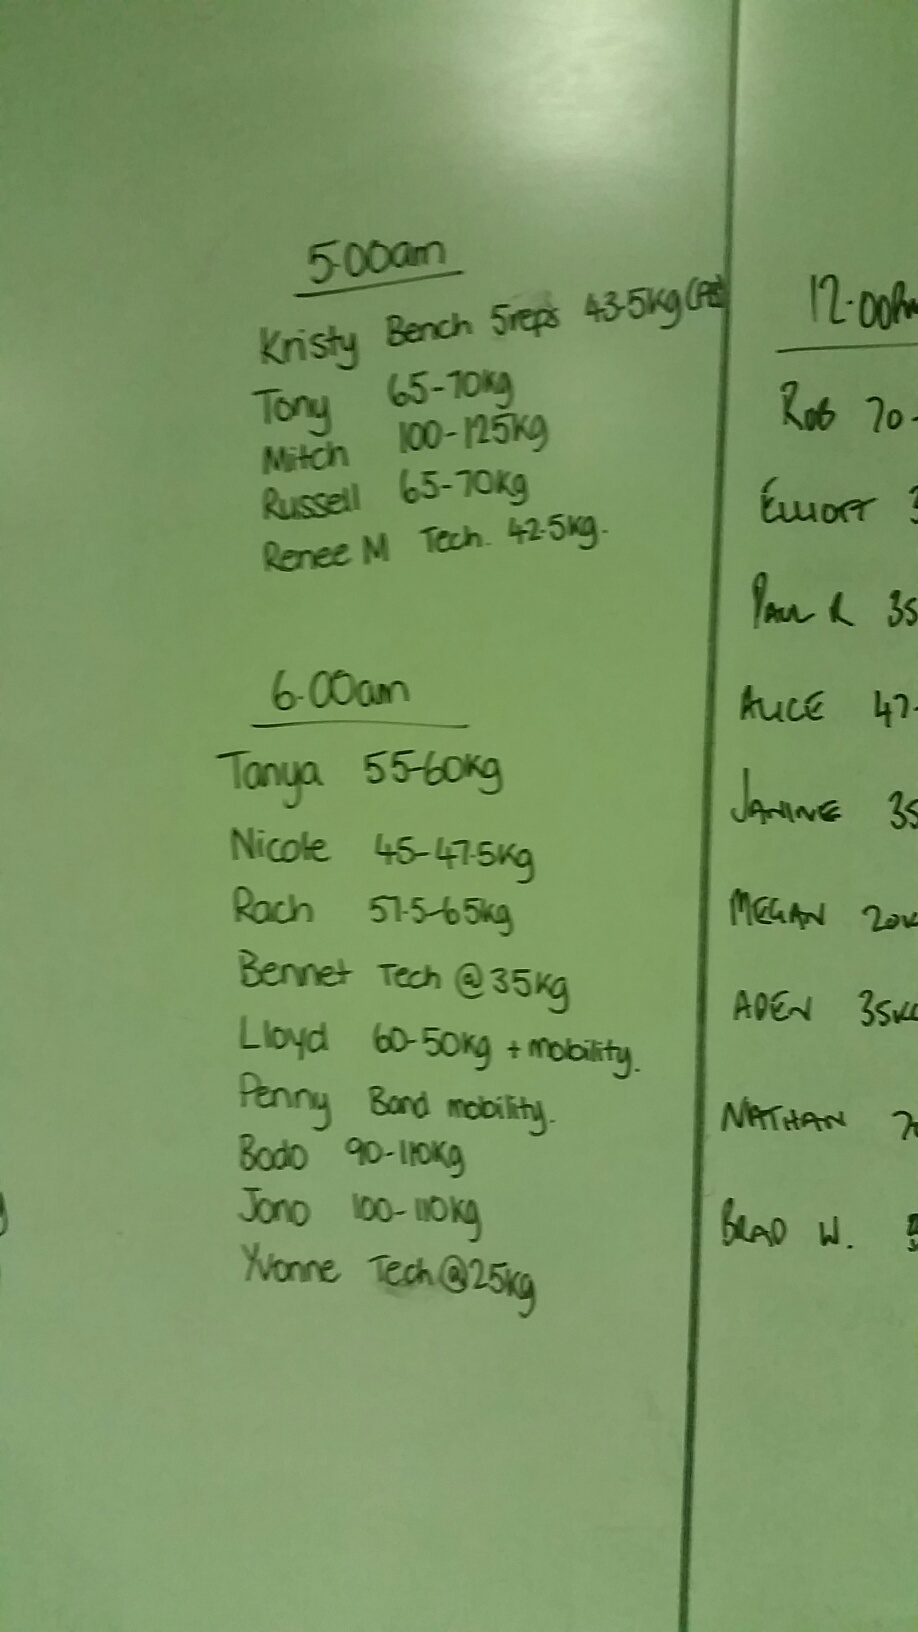 5.00am
Kristy Bench 5reps 43.5kg
Tony 65-70kg
Mitch 100-125kg
Russell 65-70kg
Renee M Tech. 42.5kg.
6.00am
Tanya 55-60kg
Nicole 45-47.5kg
Rach 57.5-65kg
Bennet Tech @ 35kg
Lloyd 60-50kg + mobility.
Penny Band mobility.
Bodo 90-110kg
Jono 100-110kg
Yvonne Tech @ 25kg
12.00Pm
ROB 70-
ELLIOTT 3
PAUL R 35
ALICE 47.
JANINE 35
MEGAN 20K
ADEN 35KG
NATHAN 70
BRAD W.